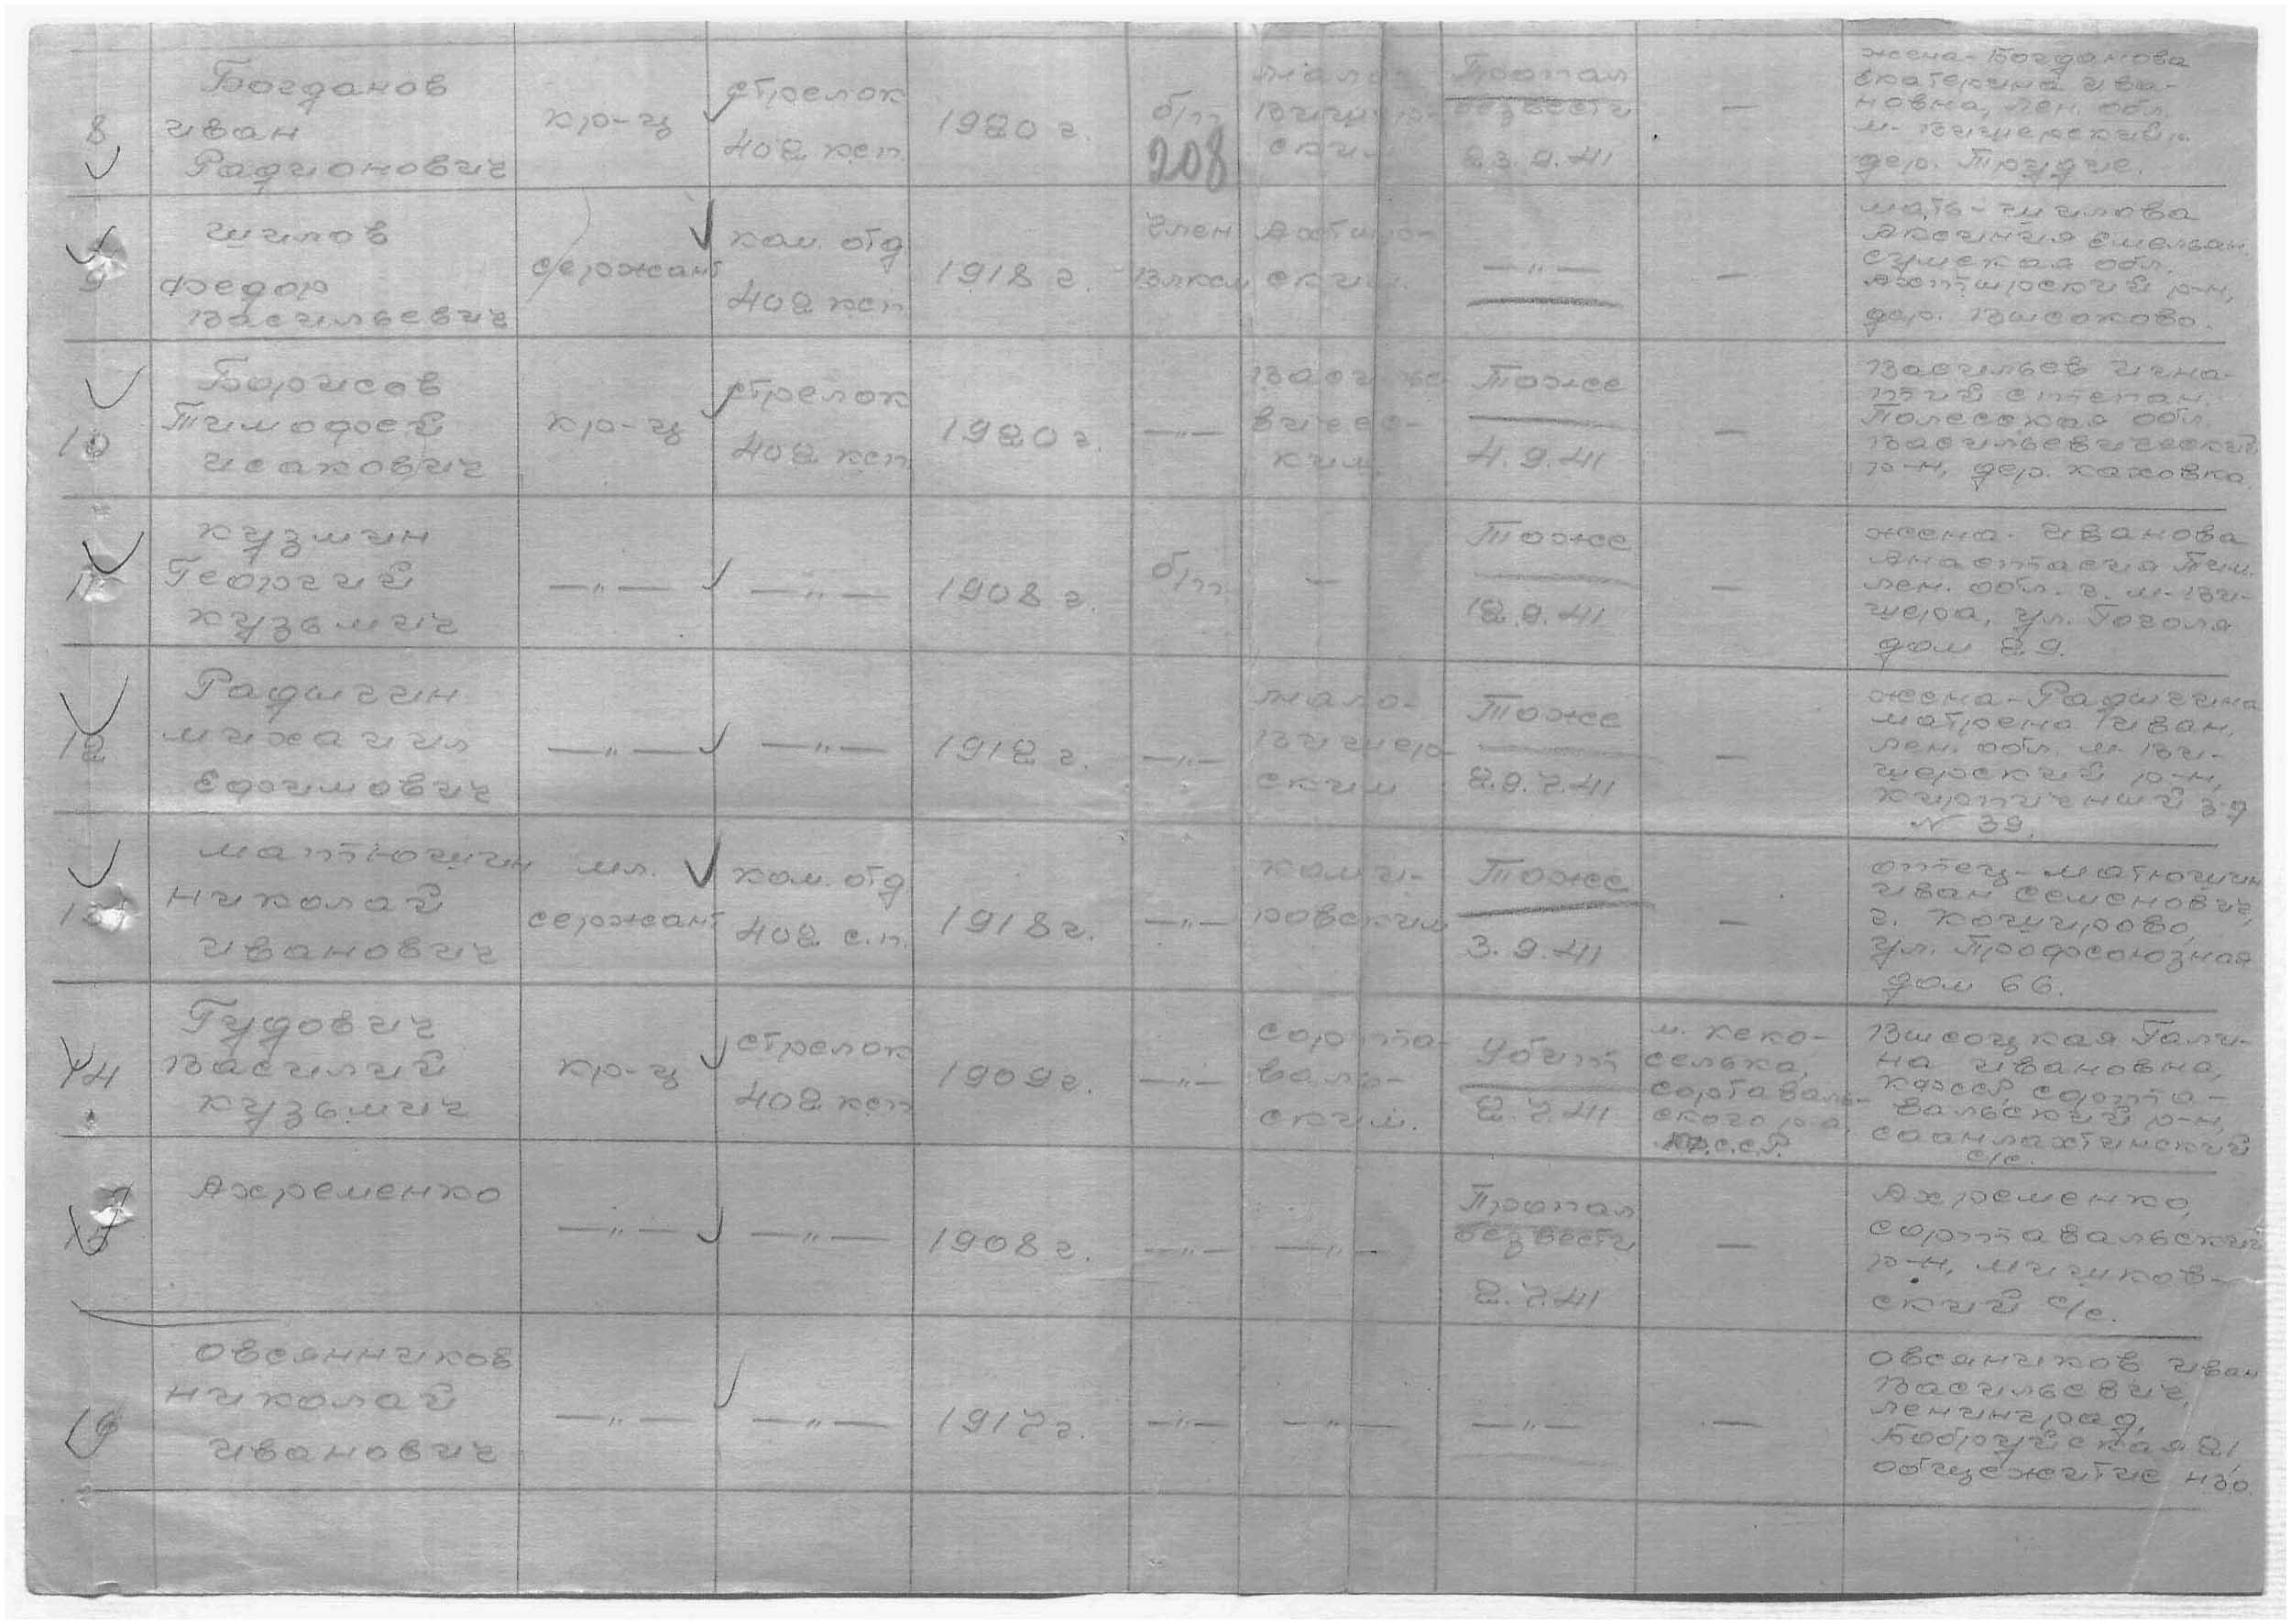 8
Богданов
Иван
Радионович
кр-ц
стрелок
402 ксп.
1920 г.
б/п
208
Мало-
Вишер-
ским
Пропал
безвести
23.9.41
—
жена-Богданова
Екатерина Ива-
новна, лен. обл.
М-Вишерский р.
дер. Трудче.
9
Шилов
Федор
Васильевич
сержант
ком. отд
402 ксп
1918 г.
член
ВЛКСМ
Ахтыр-
ским.
—"—
—
мать-Шилова
Аксиния Емельян.
Сумская обл.
Ахтырский р-н,
дер. Высоково.
10
Борисов
Тимофей
Исакович
кр-ц
стрелок
402 ксп
1920 г.
—"—
Василье-
вичес-
ким.
Тоже
4.9.41
—
Васильев Игна-
тий Степан.
Полесская обл.
Васильевический
р-н, дер. Каховка.
11
Кузмин
Георгий
Кузьмич
—"—
—"—
1908 г.
б/п
—
Тоже
12.9.41
—
жена-Иванова
Анастасия Тим.
лен. обл. г. М-Ви-
шера, ул. Гоголя
дом 29.
12
Радыгин
Михаиил
Ефимович
—"—
—"—
1912 г.
—"—
Мало-
Вишер-
ским
Тоже
29.7.41
—
жена-Радыгина
Матрена Иван.
лен. обл. М-Ви-
шерский р-н,
кирпичный з-д
№ 39.
13
Матюшин
Николай
Иванович
мл.
сержант
ком. отд
402 с.п.
1918 г.
—"—
ровским
Тоже
3.9.41
—
отец-Матюшин
Иван Семенович,
ул. Профсоюзная
дом 66.
14
Гудович
Василий
Кузьмич
кр-ц
стрелок
402 ксп
1909 г.
—"—
Сорта-
валь-
ским.
Убит
2.7.41
м. Кеко-
селька,
Сортаваль-
ского р-а,
Высоцкая Гали-
на Ивановна,
КФССР, Сорта-
вальский р-н,
Саанлахтинский
с/с.
15
Ахременко
—"—
—"—
1908 г.
—"—
—"—
Пропал
безвести
2.7.41
—
Ахременко,
Сортавальский
р-н, Мишков-
ский с/с.
16
Овсянников
Николай
Иванович
—"—
—"—
1917 г.
—"—
—"—
—"—
—
Овсяников Иван
Васильевич,
Ленинград,
Бобруйская 21,
общежитие